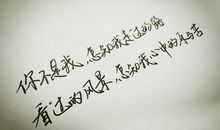 你不是我 怎知我走过的路
看过的风景 怎知我心中的乐与苦